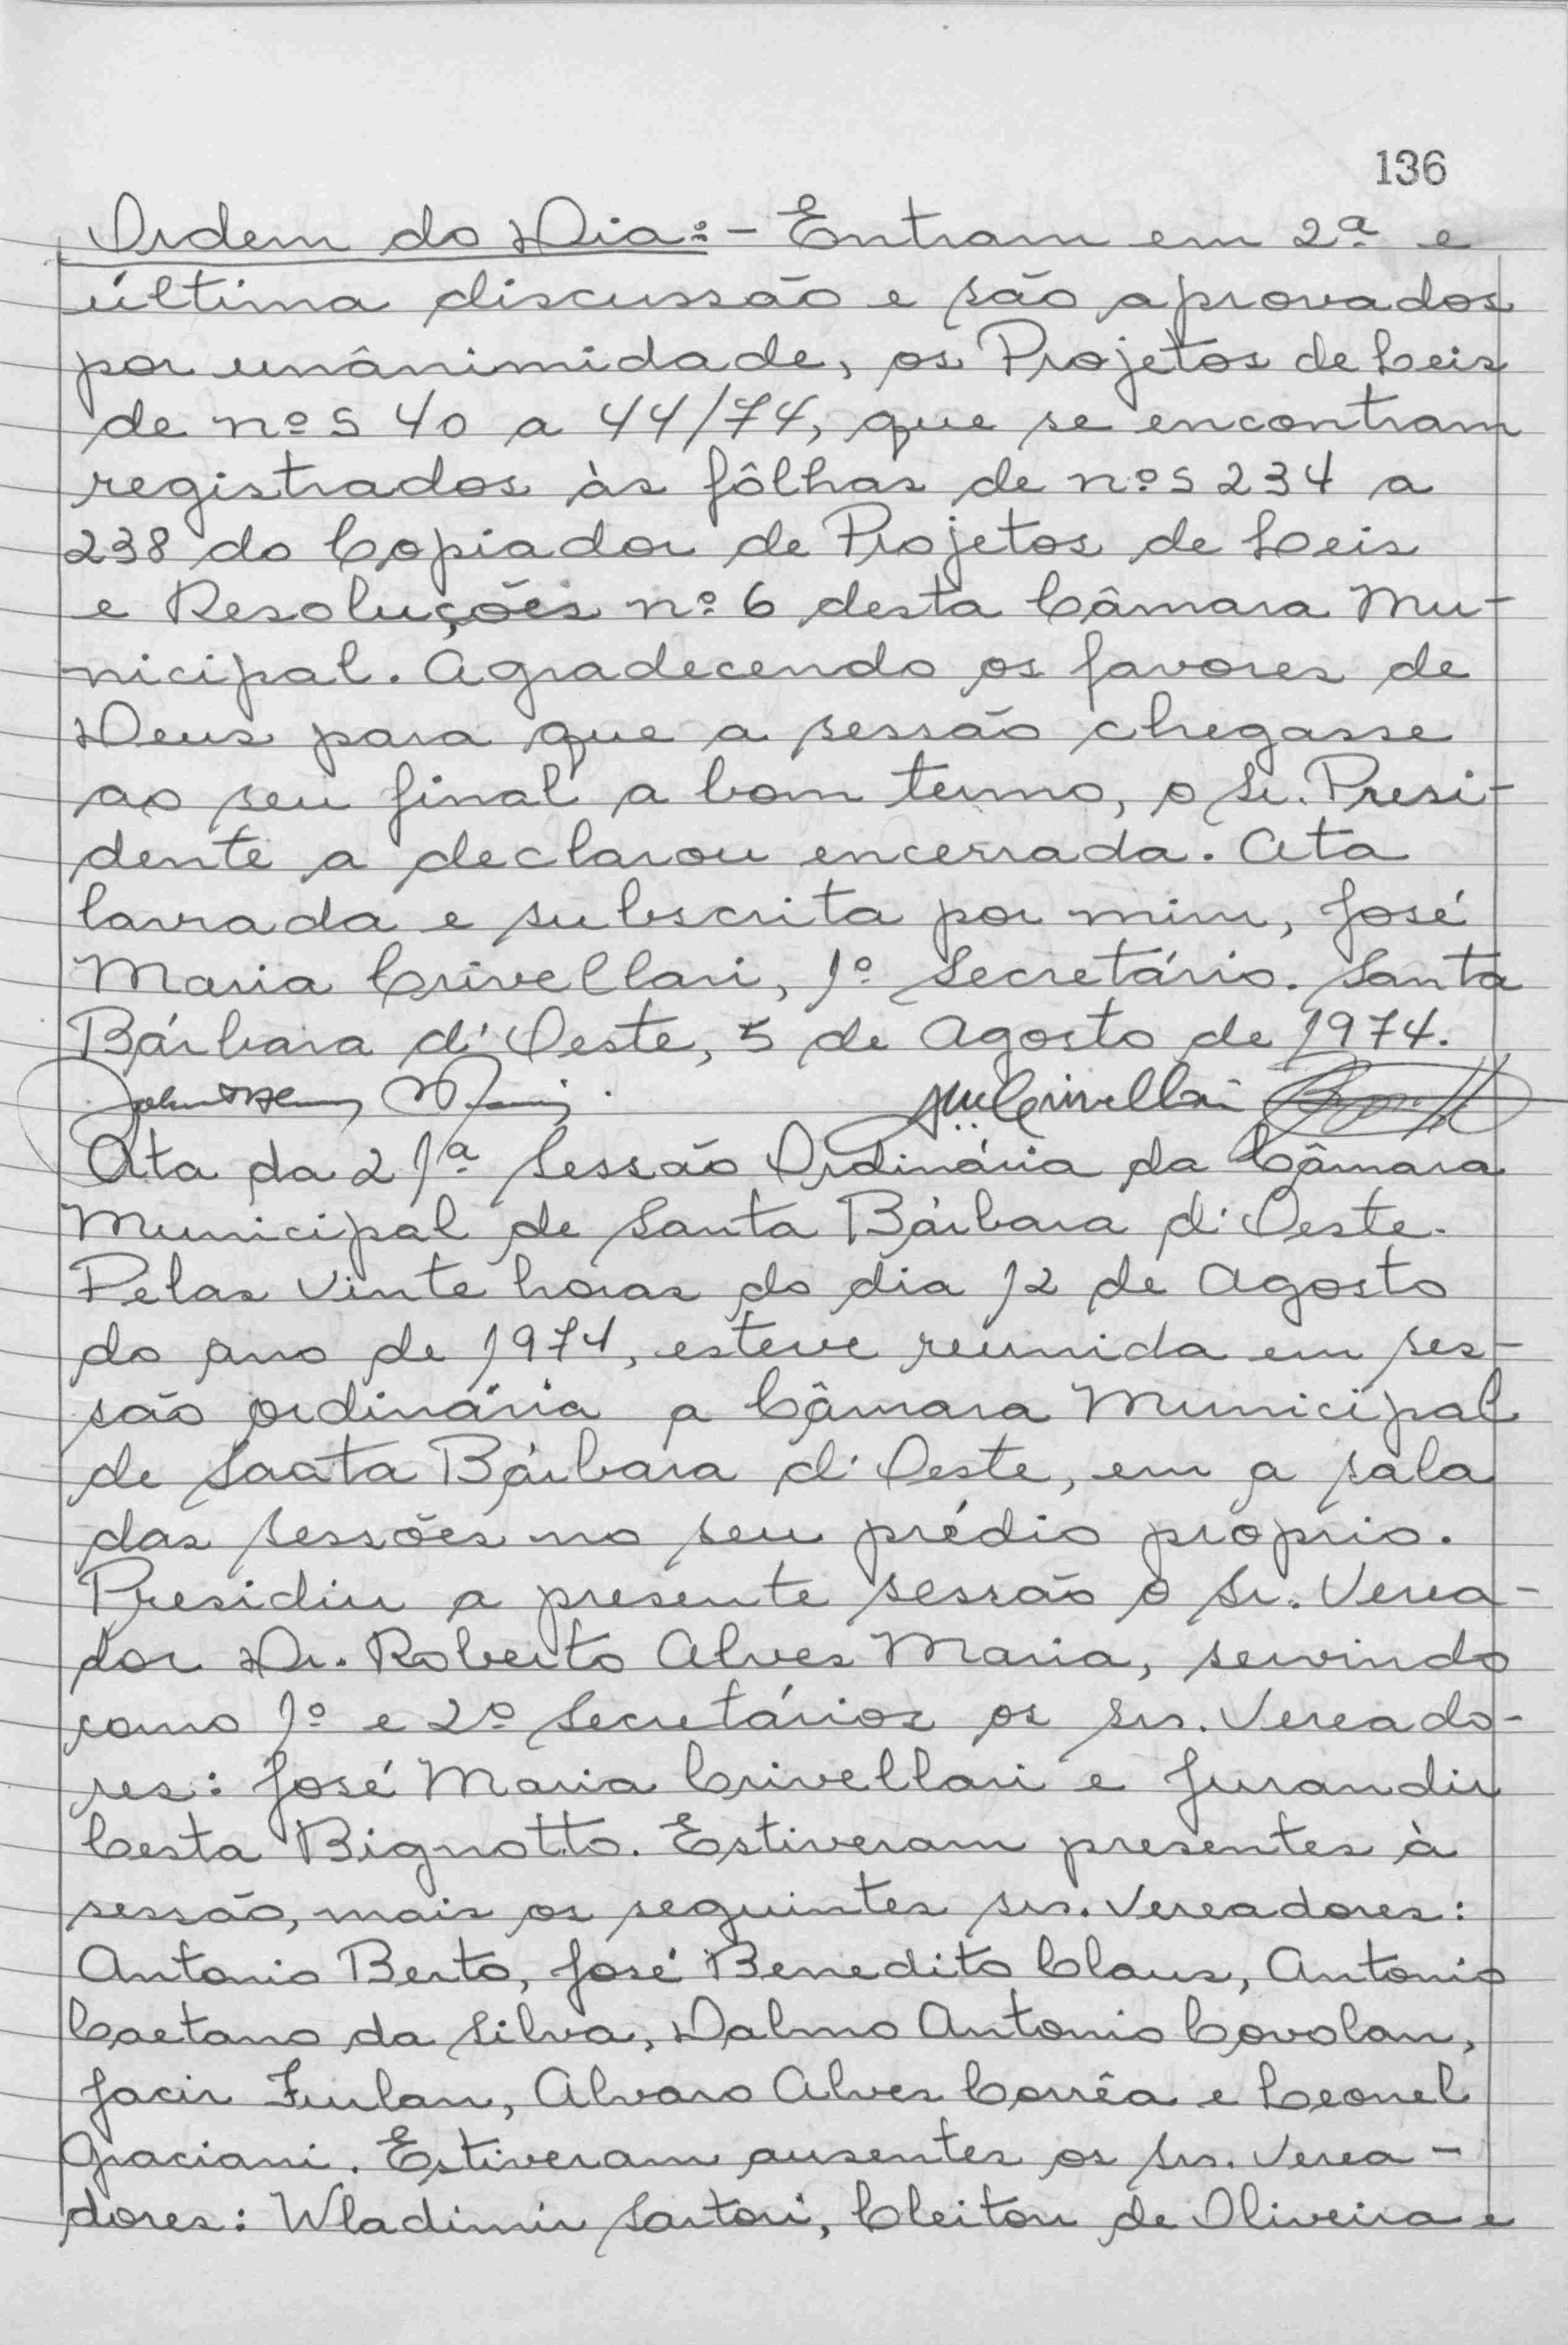 136
Ordem do Dia:- Entram em 2ª e
última discussão e são aprovados
por unânimidade, os Projetos de Leis
de nºs 40 a 44/74, que se encontram
registrados às fôlhas de nºs 234 a
238 do Copiador de Projetos de Leis
e Resoluções nº 6 desta Câmara Mu-
nicipal. Agradecendo os favores de
Deus para que a sessão chegasse
ao seu final a bom termo, o Sr. Presi-
dente a declarou encerrada. Ata
lavrada e subscrita por mim, José
Maria Crivellari, 1º Secretário. Santa
Bárbara d'Oeste, 5 de Agosto de 1974.
Crivellari
Ata da 21ª Sessão Ordinária da Câmara
Municipal de Santa Bárbara d'Oeste.
Pelas vinte horas do dia 12 de Agosto
do ano de 1974, esteve reunida em ses-
são ordinária a Câmara Municipal
de Saata Bárbara d'Oeste, em a sala
das sessões no seu prédio próprio.
Presidiu a presente sessão o Sr. Verea-
dor Dr. Roberto Alves Maria, servindo
como 1º e 2º Secretários os srs. Vereado-
res: José Maria Crivellari e Jurandir
Cesta Bignotto. Estiveram presentes à
sessão, mais os seguintes srs. Vereadores:
Antonio Berto, José Benedito Claus, Antonio
Caetano da Silva, Dalmo Antonio Covolan,
Jacir Furlan, Alvaro Alves Corrêa e Leonel
Graciani. Estiveram ausentes os srs. Verea-
dores: Wladimir Sartori, Cleiton de Oliveira e